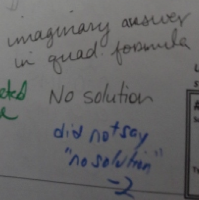 imaginary answer
in quad. formula
No solution
did not say
"no solution"
-2